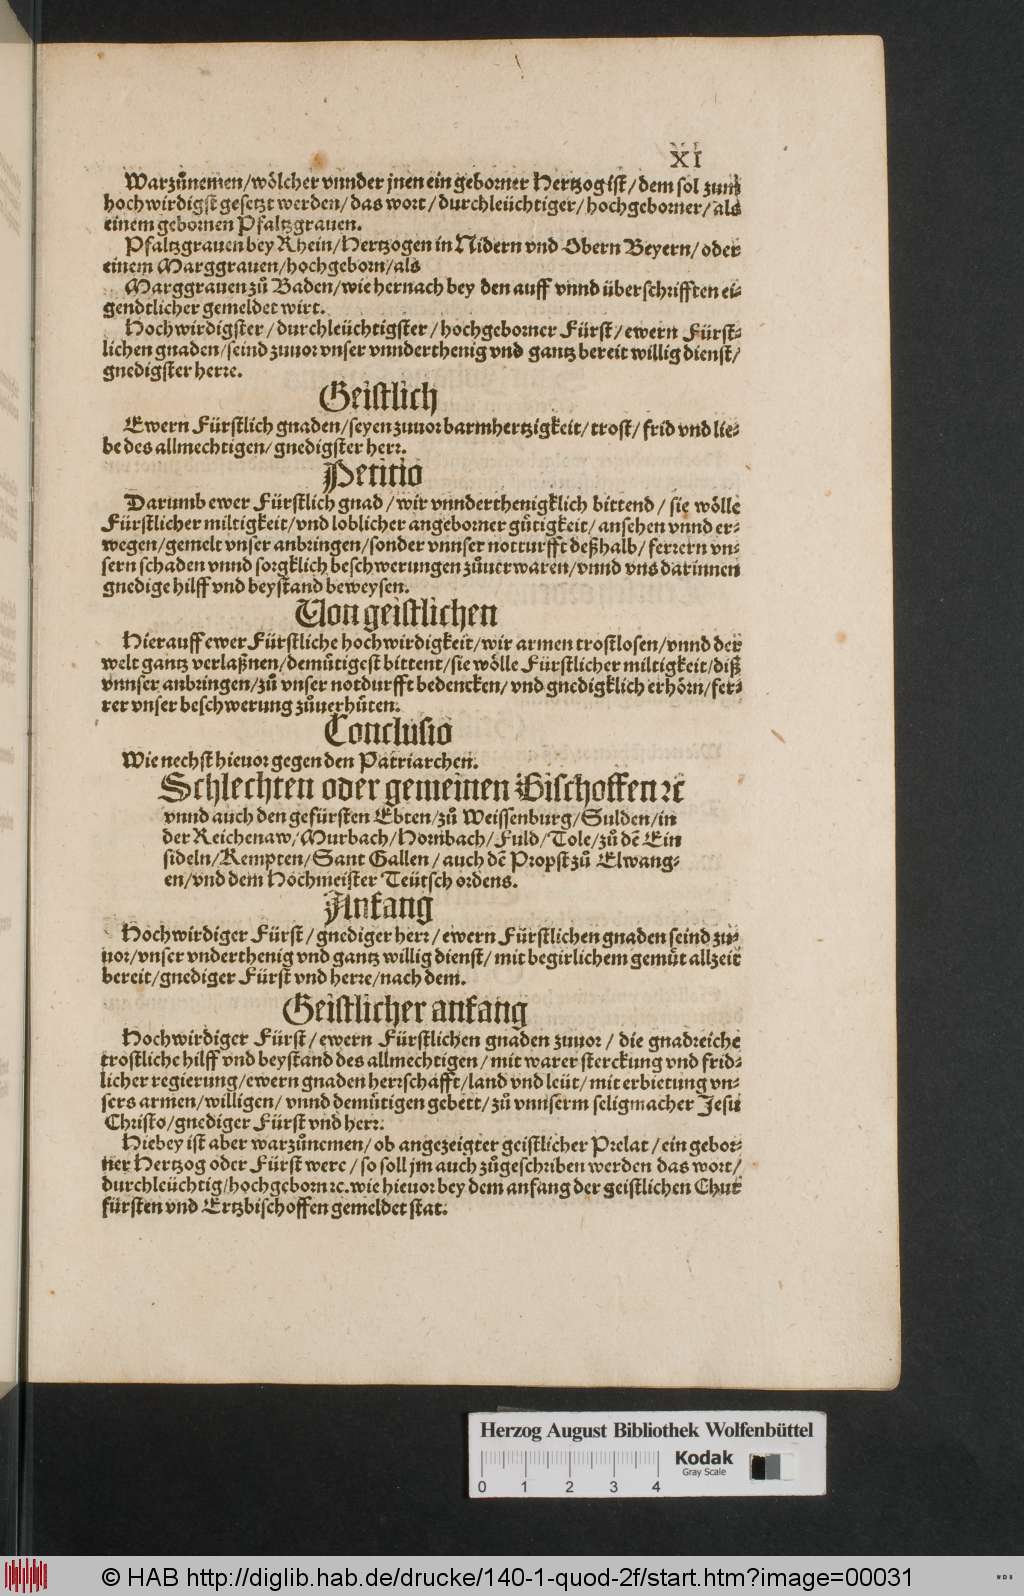 XI
Warzůnemen/wölcher vnnder jnen ein geborner Hertzog ist/dem sol zum
hochwirdigst gesetzt werden/das wort/durchleüchtiger/hochgeborner/als
einem gebornen Pfaltzgrauen.
Pfaltzgrauen bey Rhein/Hertzogen in Nidern vnd Obern Beyern/oder
einem Marggrauen/hochgeborn/als
Marggrauen zů Baden/wie hernach bey den auff vnnd überschrifften ei-
gendtlicher gemeldet wirt.
Hochwirdigster/durchleüchtigster/hochgeborner Fürst/ewern Fürst-
lichen gnaden/seind zuuor vnser vnnderthenig vnd gantz bereit willig dienst/
gnedigster herre.
Geistlich
Ewern Fürstlich gnaden/seyen zuuor barmhertzigkeit/trost/frid vnd lie-
be des allmechtigen/gnedigster herr.
Petitio
Darumb ewer Fürstlich gnad/wir vnnderthenigklich bittend/sie wölle
Fürstlicher miltigkeit/vnd loblicher angeborner gůtigkeit/ansehen vnnd er-
wegen/gemelt vnser anbringen/sonder vnnser notturfft deßhalb/ferrern vn-
sern schaden vnnd sorgklich beschwerungen zůuerwaren/vnnd vns darinnen
gnedige hilff vnd beystand beweysen.
Von geistlichen
Hierauff ewer Fürstliche hochwirdigkeit/wir armen trostlosen/vnnd der
welt gantz verlaßnen/demůtigest bittent/sie wölle Fürstlicher miltigkeit/diß
vnnser anbringen/zů vnser notdurfft bedencken/vnd gnedigklich erhörn/fer-
rer vnser beschwerung zůuerhůten.
Conclusio
Wie nechst hieuor gegen den Patriarchen.
Schlechten oder gemeinen Bischoffen ꝛc
vnnd auch den gefürsten Ebten/zů Weissenburg/Sulden/in
der Reichenaw/Murbach/Hornbach/Fuld/Tole/zů dē Ein
sideln/Kempten/Sant Gallen/auch dē Propst zů Elwang-
en/vnd dem Hochmeister Teütsch ordens.
Anfang
Hochwirdiger Fürst/gnediger herr/ewern Fürstlichen gnaden seind zu-
uor/vnser vnderthenig vnd gantz willig dienst/mit begirlichem gemůt allzeit
bereit/gnediger Fürst vnd herre/nach dem.
Geistlicher anfang
Hochwirdiger Fürst/ewern Fürstlichen gnaden zuuor/die gnadreiche
trostliche hilff vnd beystand des allmechtigen/mit warer sterckung vnd frid-
licher regierung/ewern gnaden herrschafft/land vnd leüt/mit erbietung vn-
sers armen/willigen/vnnd demůtigen gebett/zů vnnserm seligmacher Jesu
Christo/gnediger Fürst vnd herr.
Hiebey ist aber warzůnemen/ob angezeigter geistlicher Prelat/ein gebor-
ner Hertzog oder Fürst were/so soll jm auch zůgeschriben werden das wort/
durchleüchtig/hochgeborn ꝛc. wie hieuor bey dem anfang der geistlichen Chur
fürsten vnd Ertzbischoffen gemeldet stat.
Herzog August Bibliothek Wolfenbüttel
Kodak
Gray Scale
0 1 2 3 4
© HAB http://diglib.hab.de/drucke/140-1-quod-2f/start.htm?image=00031